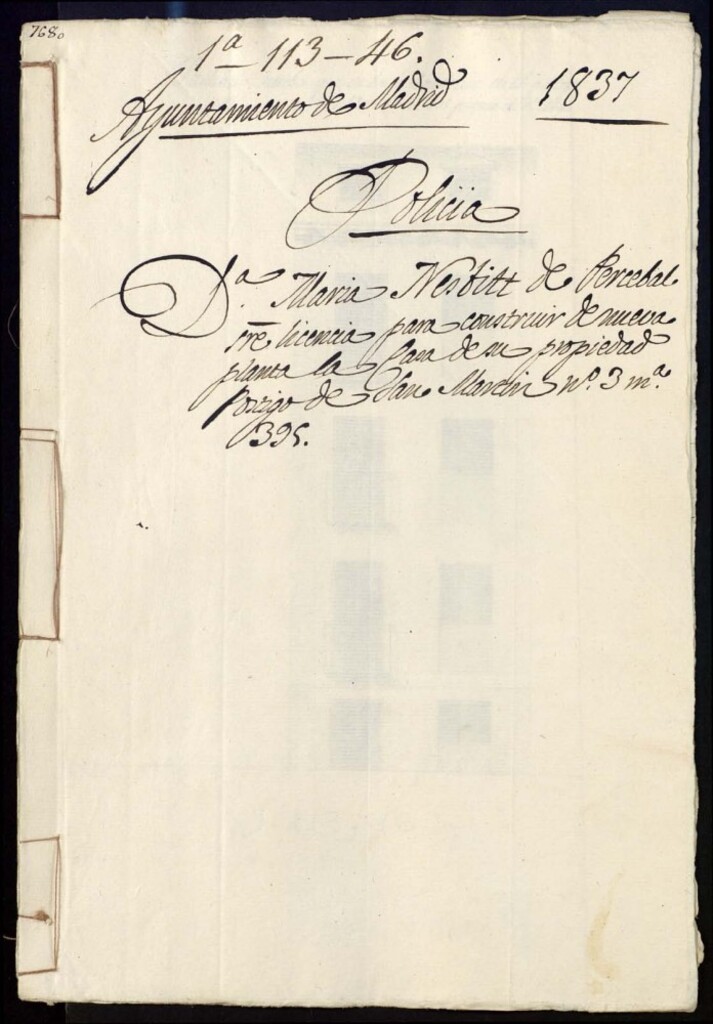 7680
1ª – 113 – 46.
Ayuntamiento de Madrid 1837
Policia
Dª. Maria Nesbitt de Percebal
sre. licencia para construir de nueva
planta la Casa de su propiedad
Postigo de San Martin nº. 3 mª.
395.